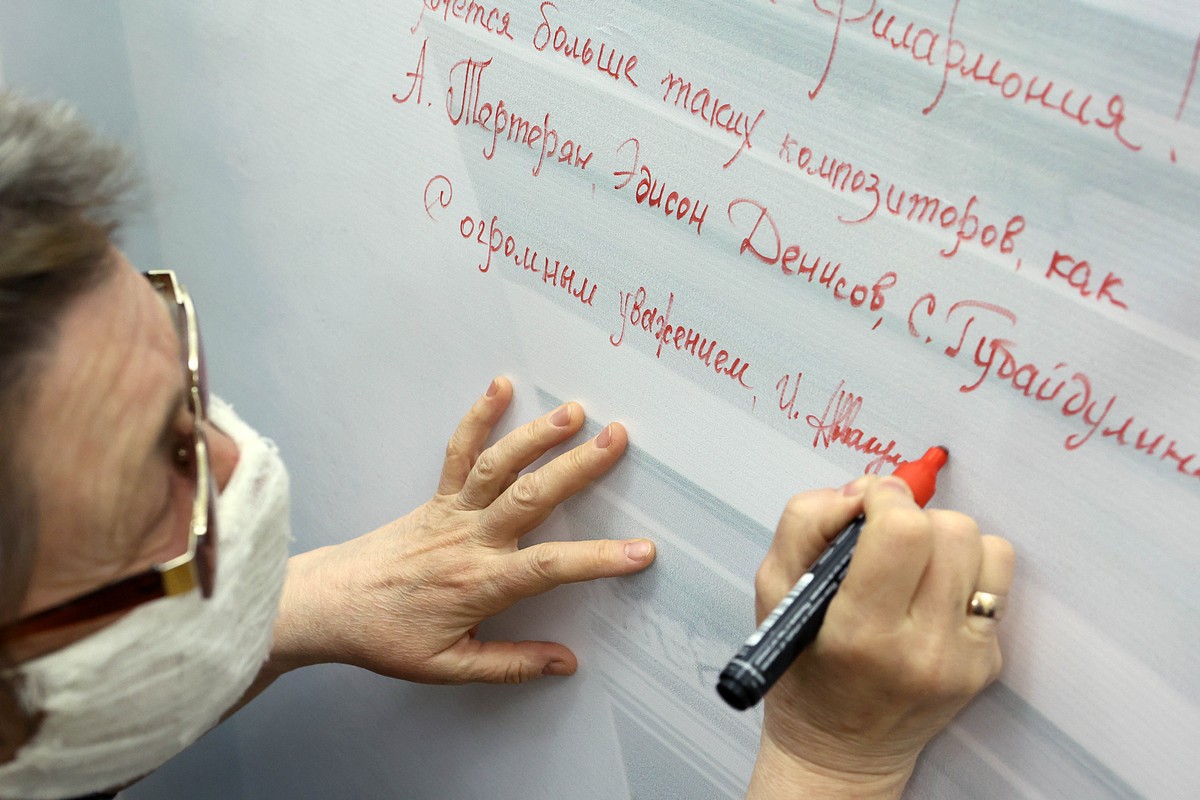 филармония!
хочется больше таких композиторов, как
А. Тертерян, Эдисон Денисов, С. Губайдулин
С огромным уважением, И.